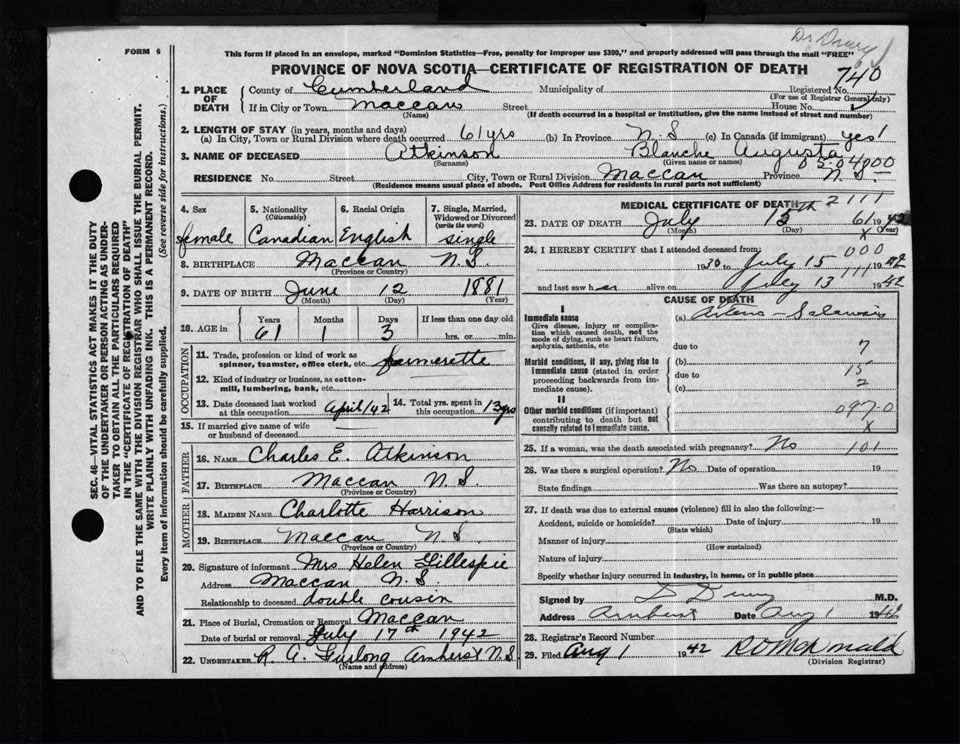 Dr Drury
FORM 6
This form if placed in an envelope, marked "Dominion Statistics—Free, penalty for improper use $300," and properly addressed will pass through the mail "FREE"
PROVINCE OF NOVA SCOTIA—CERTIFICATE OF REGISTRATION OF DEATH
740
1. PLACE OF DEATH
County of Cumberland Municipality of Registered No.
(For use of Registrar General only)
If in City or Town Maccan Street House No.
(Name) (If death occurred in a hospital or institution, give the name instead of street and number)
2. LENGTH OF STAY (in years, months and days)
(a) In City, Town or Rural Division where death occurred 61 yrs (b) In Province N.S (c) In Canada (if immigrant) yes!
3. NAME OF DECEASED Atkinson Blanche Augusta
(Surname) (Given name or names)
RESIDENCE No. Street City, Town or Rural Division Maccan Province N.S.
(Residence means usual place of abode. Post Office Address for residents in rural parts not sufficient)
SEC. 46—VITAL STATISTICS ACT MAKES IT THE DUTY
OF THE UNDERTAKER OR PERSON ACTING AS UNDER-
TAKER TO OBTAIN ALL THE PARTICULARS REQUIRED
IN THE "CERTIFICATE OF REGISTRATION OF DEATH"
AND TO FILE THE SAME WITH THE DIVISION REGISTRAR WHO SHALL ISSUE THE BURIAL PERMIT.
WRITE PLAINLY WITH UNFADING INK. THIS IS A PERMANENT RECORD.
Every item of information should be carefully supplied. (See reverse side for instructions.)
4. Sex 5. Nationality (Citizenship) 6. Racial Origin 7. Single, Married, Widowed or Divorced (write the word)
female Canadian English single
8. BIRTHPLACE Maccan N.S.
(Province or Country)
9. DATE OF BIRTH June 12 1881
(Month) (Day) (Year)
10. AGE in Years Months Days If less than one day old
61 1 3 hrs. or min.
OCCUPATION
11. Trade, profession or kind of work as
spinner, teamster, office clerk, etc. farmerette
12. Kind of industry or business, as cotton-
mill, lumbering, bank, etc.
13. Date deceased last worked at this occupation April/42 14. Total yrs. spent in this occupation 13 yrs
15. If married give name of wife
or husband of deceased
FATHER
16. NAME Charles E. Atkinson
17. BIRTHPLACE Maccan N.S.
(Province or Country)
MOTHER
18. MAIDEN NAME Charlotte Harrison
19. BIRTHPLACE Maccan N S.
(Province or Country)
20. Signature of informant Mrs Helen Gillespie
Address Maccan N.S.
Relationship to deceased double cousin
21. Place of Burial, Cremation or Removal Maccan
Date of burial or removal July 17th 1942
22. UNDERTAKER R. A. Furlong Amherst N.S
(Name and address)
MEDICAL CERTIFICATE OF DEATH 2111
23. DATE OF DEATH July 15th 61 1942
(Month) (Day) x (Year)
24. I HEREBY CERTIFY that I attended deceased from: 000
1930 to July 15 1942
and last saw her alive on July 13 1942
CAUSE OF DEATH
I
Immediate cause
Give disease, injury or complica-
tion which caused death, not the
mode of dying, such as heart failure,
asphyxia, asthenia, etc.
(a) Arterio-
due to 7
Morbid conditions, if any, giving rise to
immediate cause (stated in order
proceeding backwards from im-
mediate cause).
(b) 15
due to 2
(c)
II
Other morbid conditions (if important)
contributing to death but not
causally related to immediate cause.
097-0
x
25. If a woman, was the death associated with pregnancy? No 101
26. Was there a surgical operation? No Date of operation 19
State findings Was there an autopsy?
27. If death was due to external causes (violence) fill in also the following:—
Accident, suicide or homicide? Date of injury 19
(State which)
Manner of injury
(How sustained)
Nature of injury
Specify whether injury occurred in industry, in home, or in public place
Signed by M.D.
Address Amherst Date Aug 1 1942
28. Registrar's Record Number
29. Filed Aug 1 1942 R O McDonald
(Division Registrar)